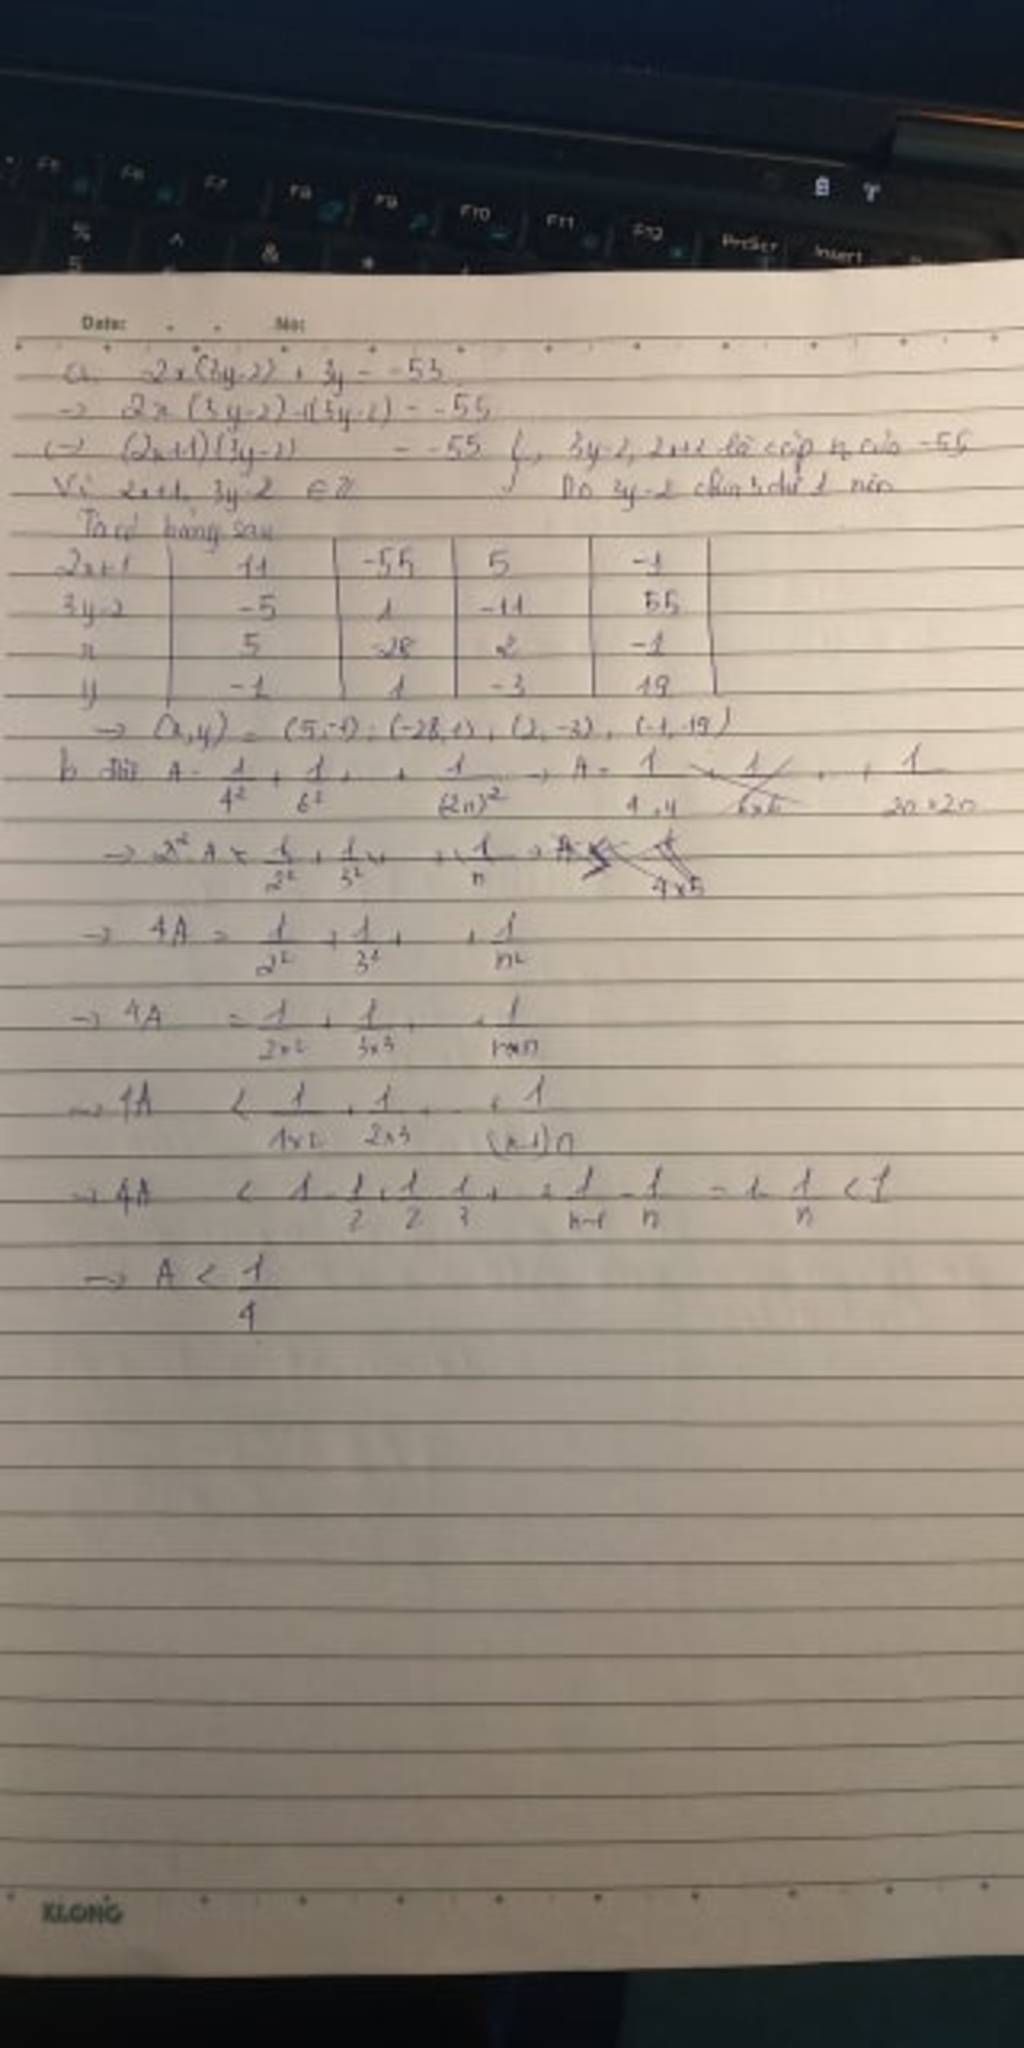 F5 F6 F7 F8 F9 F10 F11 F12 PrtScr Insert
% ^ & *
5
Date: No:
a. 2x(3y-2) + 3y = -53
→ 2x (3y-2) + (3y-2) = -55
(→ (2x+1)(3y-2) = -55 3y-2, 2x+1 là cặp của -55
Vì 2x+1, 3y-2 ∈ Z Do 3y-2 chia 3 dư 1 nên
Ta có bảng sau
2x+1 11 -55 5 -1
3y-2 -5 1 -11 55
x 5 -28 2 -1
y -1 1 -3 19
→ (x,y) = (5,-1); (-28,1); (2,-3); (-1,19)
b. đặt A = 1/4² + 1/6² + + 1/(2n)² → A = 1/4×4 + 1/6×6 + + 1/2n×2n
→ 2² A = 1/2² + 1/3² + + 1/n → A < 1/4×5
→ 4A = 1/2² + 1/3² + + 1/n²
→ 4A = 1/2×2 + 1/3×3 + + 1/n×n
→ 4A < 1/1×2 + 1/2×3 + + 1/(n-1)n
→ 4A < 1 - 1/2 + 1/2 - 1/3 + + 1/n-1 - 1/n = 1 - 1/n < 1
→ A < 1/4
KLONG